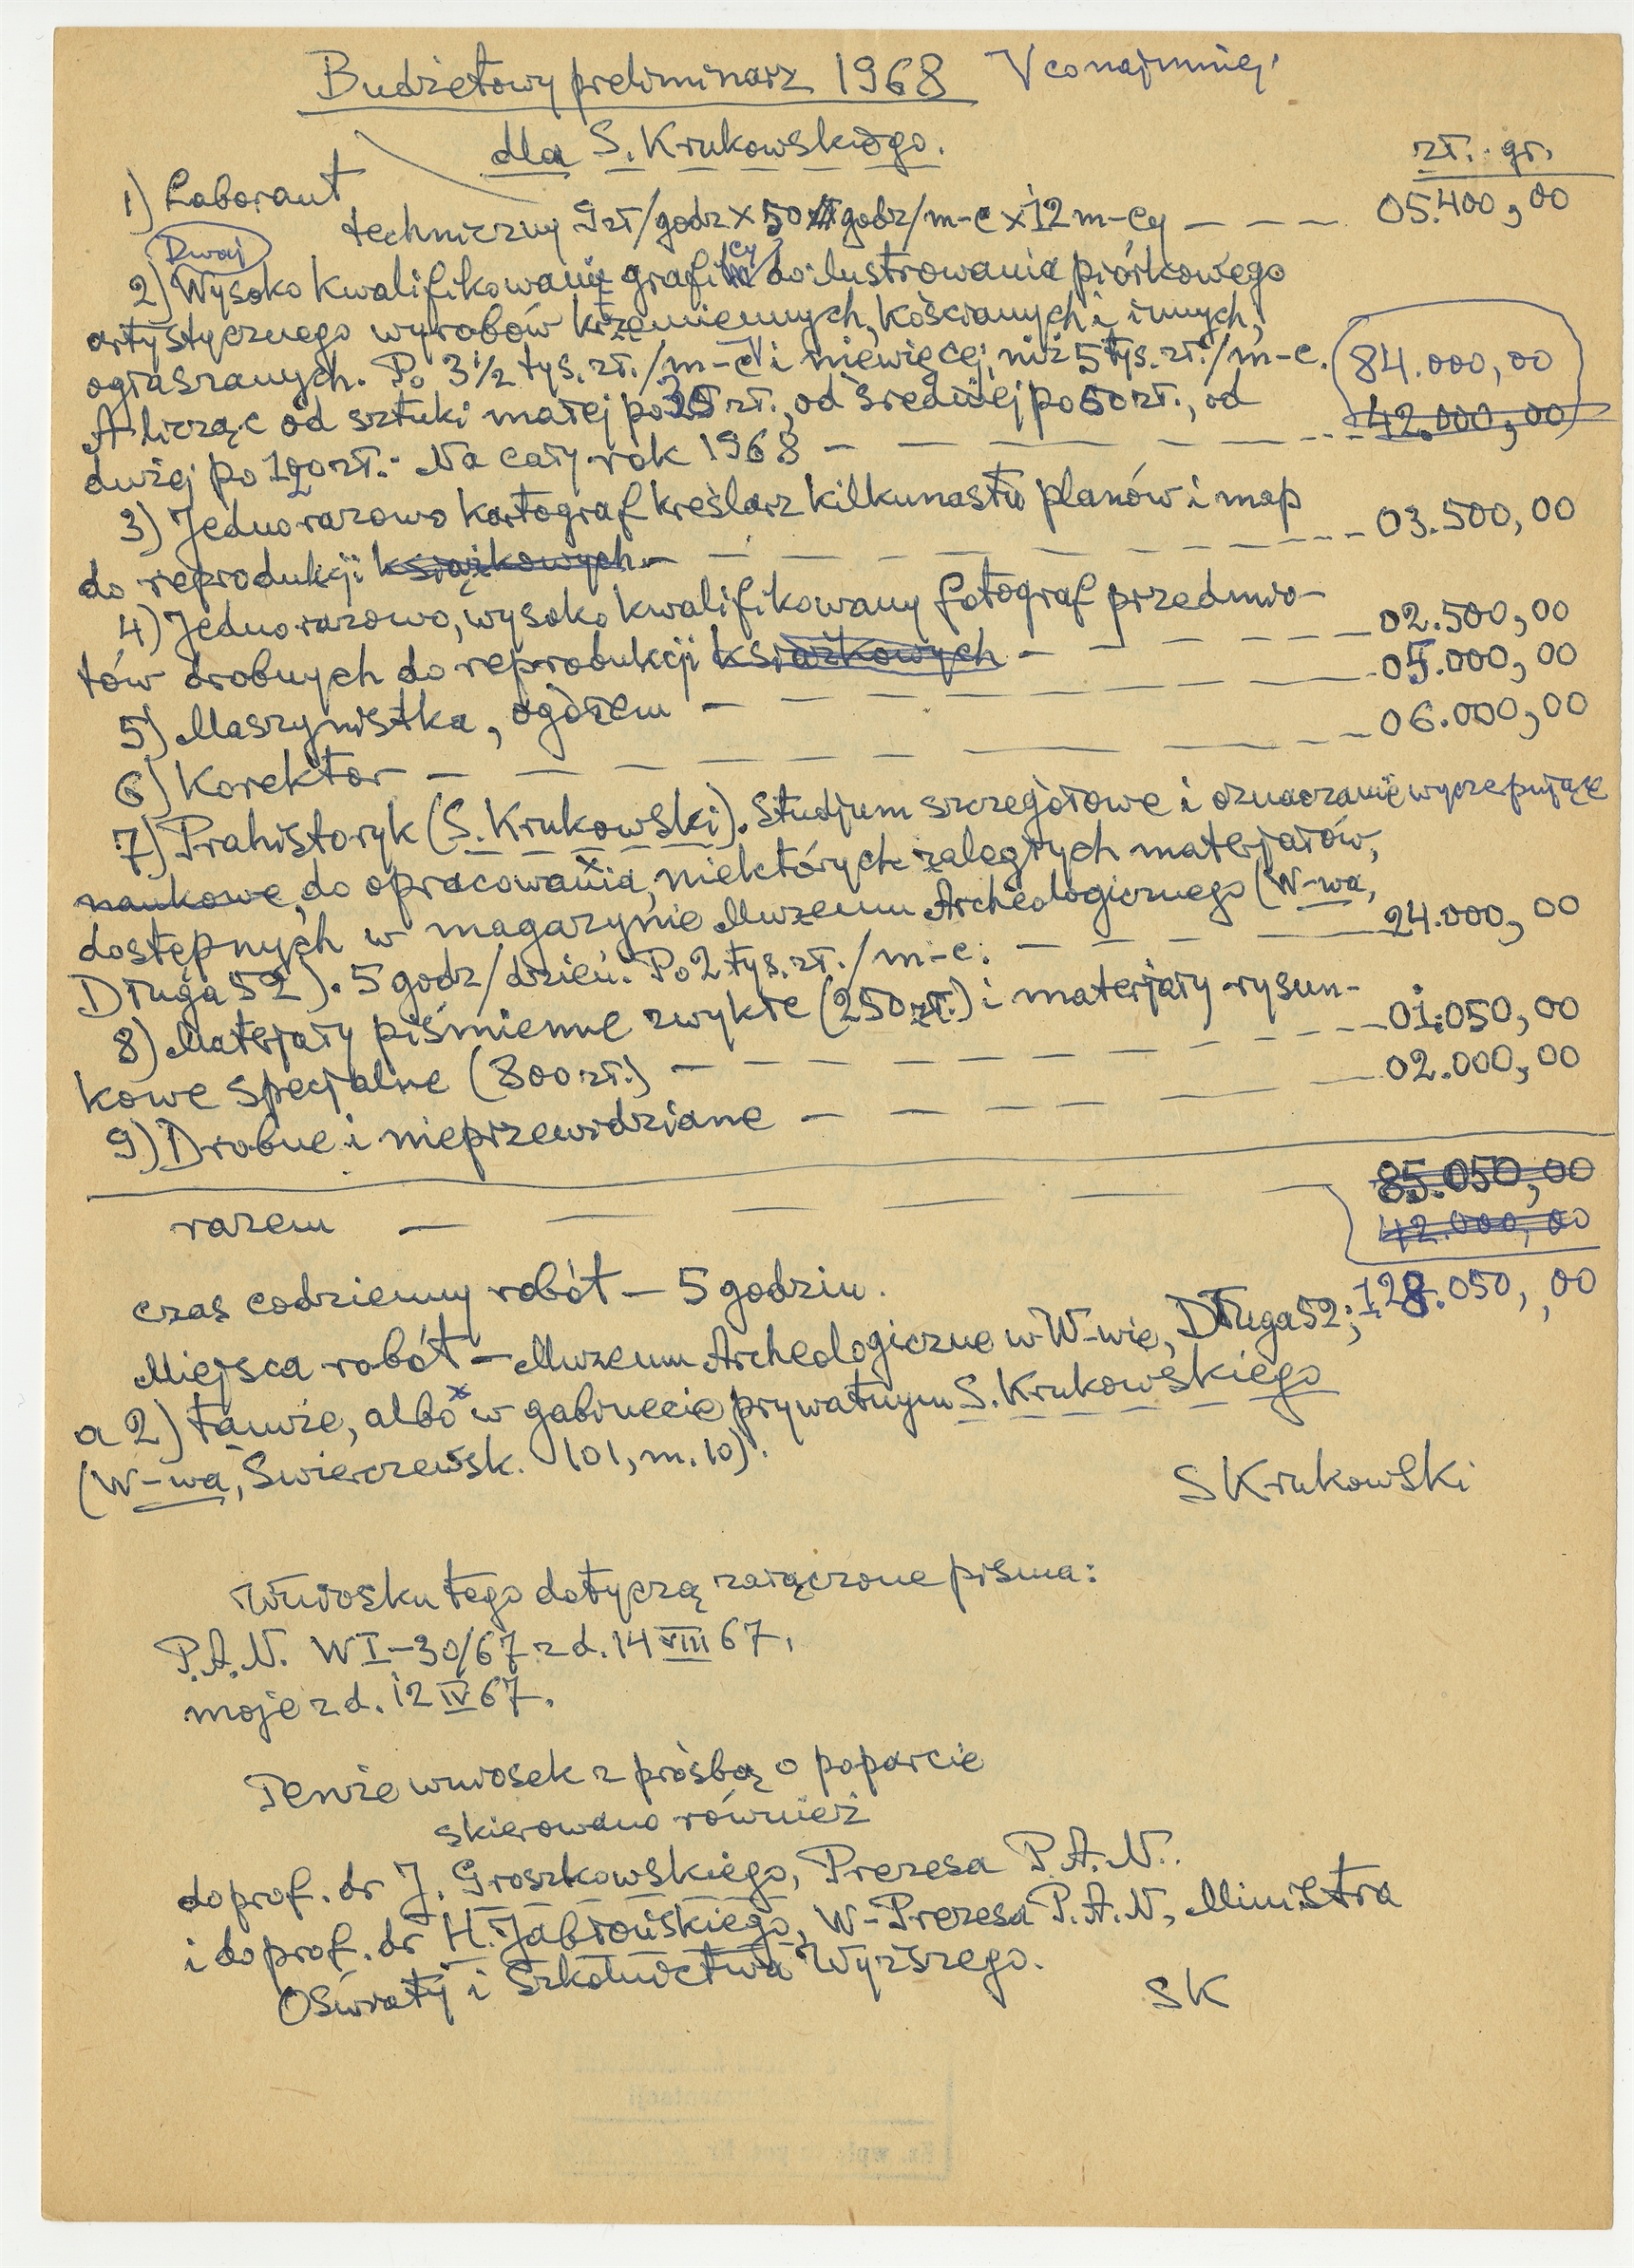 Budżetowy preliminarz 1968 V conajmniej.
dla S. Krukowskiego.
zł. gr.
1) Laborant
techniczny 9 zł/godz x 50 godz/m-c x 12 m-cy — — — 05.400,00
Dwaj
2) Wysoko kwalifikowani graficy do ilustrowania piórkowego
artystycznego wyrobów krzemiennych, kościanych i innych,
ogłaszanych. Po 3 1/2 tys. zł./m-c i niewięcej, niż 5 tys. zł./m-c. 84.000,00
A licząc od sztuki małej po 35 zł., od średniej po 50 zł., od 42.000,00
dużej po 120 zł. Na cały rok 1968 —
3) Jednorazowo kartograf kreślarz kilkunastu planów i map
do reprodukcji książkowych — 03.500,00
4) Jednorazowo, wysoko kwalifikowany fotograf przedmio-
tów drobnych do reprodukcji książkowych — 02.500,00
5) Maszynistka, ogółem — 05.000,00
6) Korektor — 06.000,00
7) Prahistoryk (S. Krukowski). Studjum szczegółowe i oznaczanie wyczerpujące
naukowe, do opracowania, niektórych zaległych materjałów,
dostępnych w magazynie Muzeum Archeologicznego (W-wa,
Długa 52). 5 godz/dzień. Po 2 tys. zł./m-c. — 24.000,00
8) Materjały piśmienne zwykłe (250 zł.) i materjały rysun-
kowe specjalne (800 zł.) — 01.050,00
9) Drobne i nieprzewidziane — 02.000,00
85.050,00
razem — 42.000,00
128.050,00
czas codzienny robót — 5 godzin.
Miejsca robót — Muzeum Archeologiczne w W-wie, Długa 52;
a 2) tamże, albo w gabinecie prywatnym S. Krukowskiego
(W-wa, Świerczewsk. 101, m. 10).
S Krukowski
Wniosku tego dotyczą załączone pisma:
P.A.N. WI-30/67 z d. 14 VIII 67,
moje z d. 12 IV 67.
Tenże wniosek z prośbą o poparcie
skierowano również
do prof. dr J. Groszkowskiego, Prezesa P.A.N.
i do prof. dr H. Jabłońskiego, W-Prezesa P.A.N., Ministra
Oświaty i Szkolnictwa Wyższego.
SK